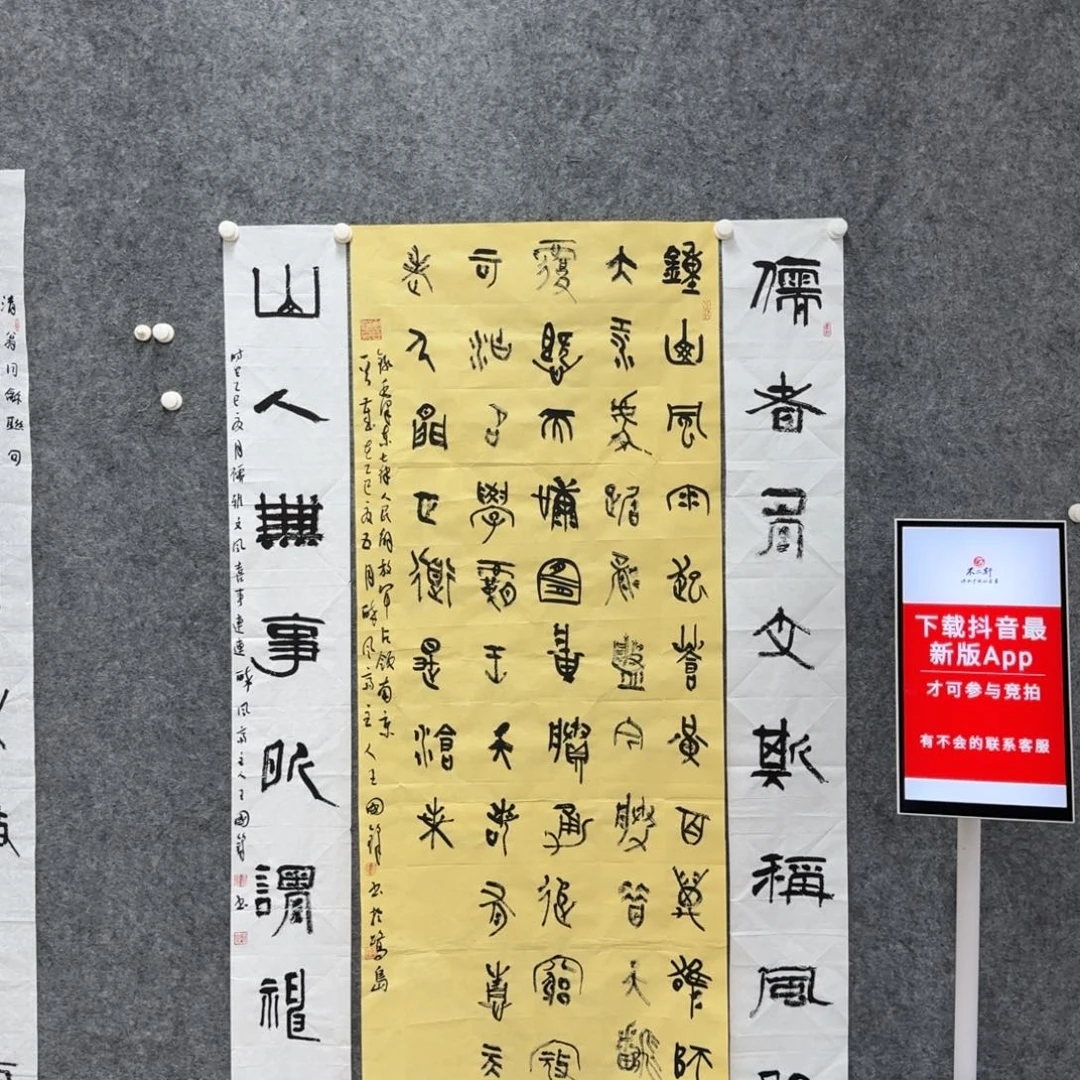 儒者有文斯稱風
鍾山風雨起蒼黃百萬雄師
大江虎踞龍盤今勝昔天翻
覆慨而慷宜將勝勇追窮寇
可沽名學霸王天若有情天
老人間正道是滄桑
錄毛澤東七律人民解放軍占領南京
乙巳夏五月醉風齋主人王國鋒书於鷺島
山人無事所謂神
时在乙巳夏月儒雅文風喜事連連醉風齋主人王國鋒书
清翁同龢聯句
不二轩
下载抖音最
新版App
才可参与竞拍
有不会的联系客服